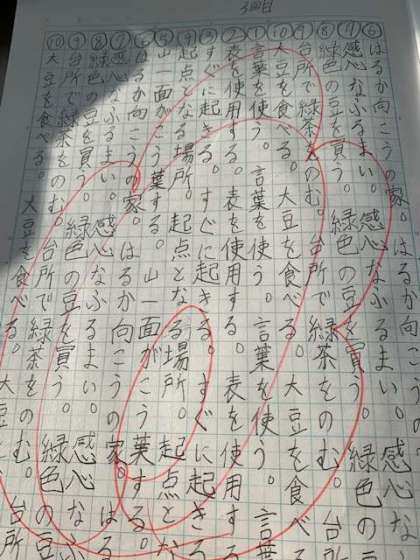 3回目
⑥はるか向こうの家。はるか向こうの
⑦感心なふるまい。感心なふるまい。感心な
⑧緑色の豆を買う。緑色の豆を買う。緑色の
⑨台所で緑茶をのむ。台所で緑茶をのむ。台
⑩大豆を食べる。大豆を食べる。大豆を食べ
①言葉を使う。言葉を使う。言葉を使う。言葉
②表を使用する。表を使用する。表を使用す
③すぐに起きる。すぐに起きる。すぐに起きる
④起点となる場所。起点となる場所。起点とな
⑤山一面がこう葉する。山一面がこう葉する。
⑥はるか向こうの家。はるか向こうの家。はる
⑦感心なふるまい。感心なふるまい。感心なふ
⑧緑色の豆を買う。緑色の豆を買う。緑色の豆
⑨台所で緑茶をのむ。台所で緑茶をのむ。台所
⑩大豆を食べる。大豆を食べる。大豆